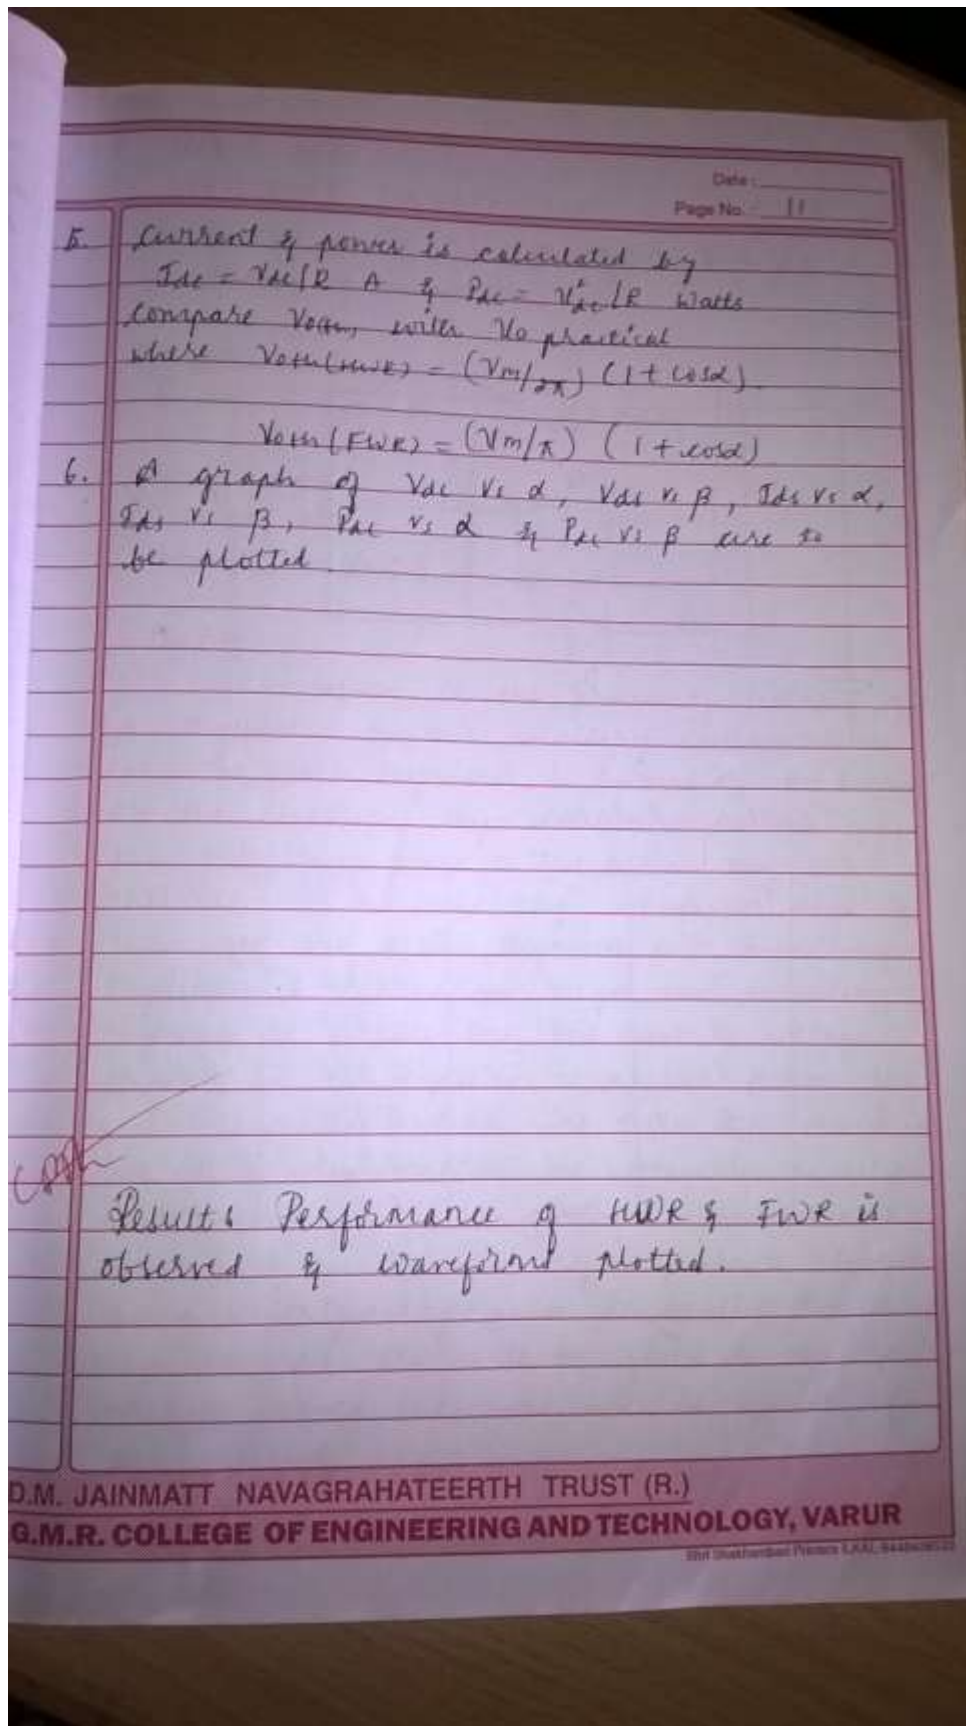 Date :
Page No. 11
5. Current & power is calculated by
Idc = Vdc/R A & Pdc = V²dc/R Watts
compare Voth, with Vo practical
where Voth(HWR) = (Vm/2π) (1 + cosα).
Voth (FWR) = (Vm/π) (1 + cosα)
6. A graph of Vdc Vs α, Vdc vs β, Idc Vs α,
Idc Vs β, Pdc vs α & Pdc Vs β are to
be plotted.
Result : Performance of HWR & FWR is
observed & waveforms plotted.
D.M. JAINMATT NAVAGRAHATEERTH TRUST (R.)
G.M.R. COLLEGE OF ENGINEERING AND TECHNOLOGY, VARUR